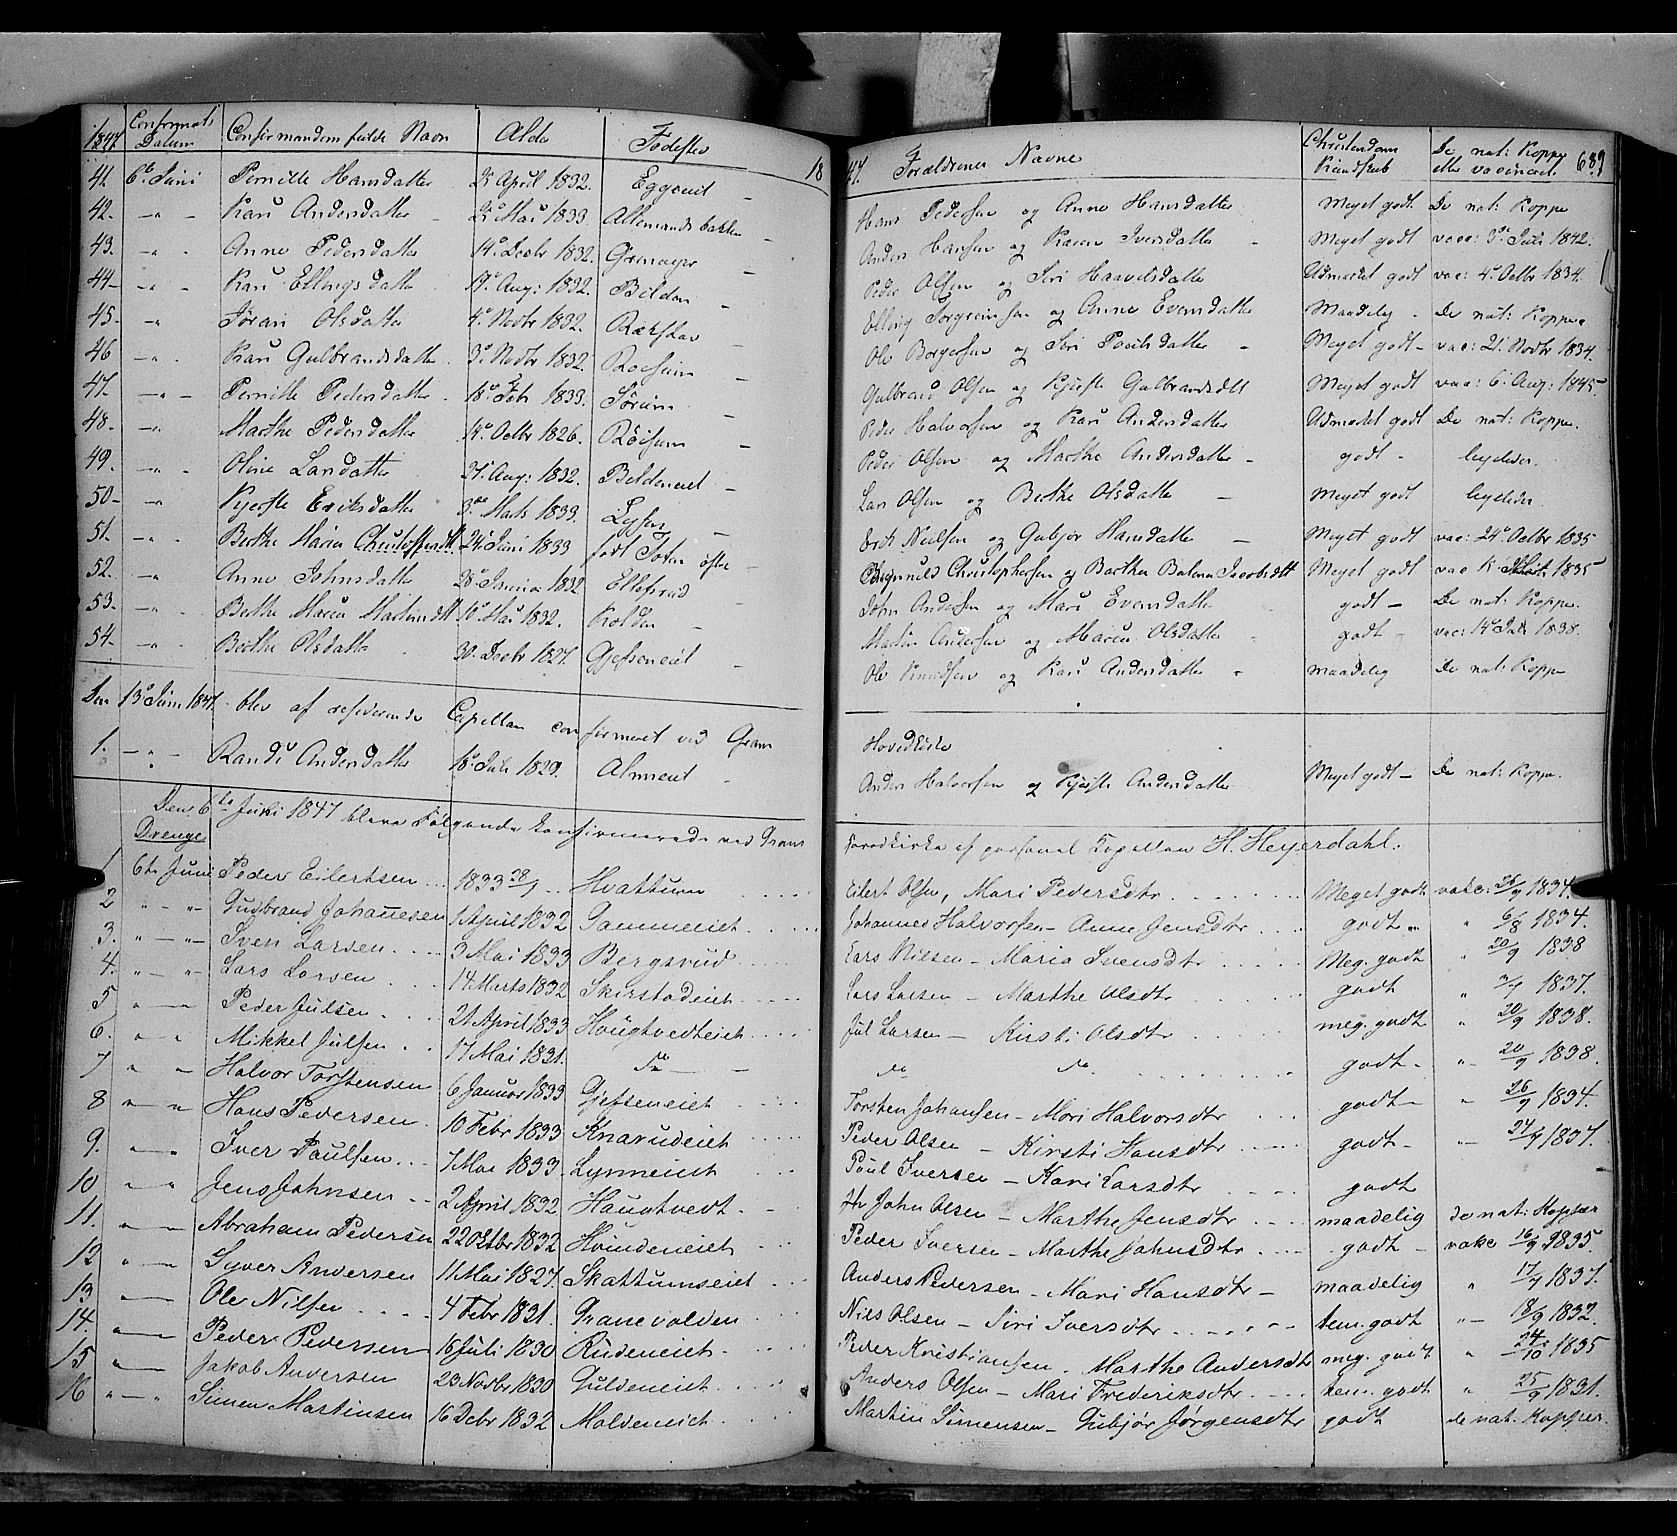 1847. Confirmat: Datum Confirmandens fulde Navn Alder Fødested 18 47. Forældrenes Navne Christendoms Kundskab De nat: Kopper eller vaccineret 689
41. 6te Juni Pernille Hansdatter April 1832. Eggeeiet Hans Pedersen og Anne Hansdatter Meget godt. De nat: Kopper
42. Kari Andersdatter Mai 1833. Allemandsbakken Anders Hansen og Karen Iversdatter Meget godt vacc: 3die Juli 1842.
43. Anne Pedersdatter 14de Decbr 1832. Peder Olsen og Siri Haavelsdatter Udmærket godt vac: 4de Octbr 1834.
44. Kari Ellingsdatter 19de Aug: 1832. Bilden Elling Torgeirsen og Anne Evensdatter Maadelig De nat: Kopper
45. Jøran Olsdatter 4de Novbr 1832. Ole Borgersen og Siri Povelsdatter Meget godt vac: 21 Novbr 1834.
46 Kari Gulbrandsdatter 3die Novbr 1832. Røisum Gulbrand Olsen og Kjerste Gulbrandsdtt Meget godt vac: 6te Aug: 1845.
47. Pernille Pedersdatter 18de Feb 1833. Sørum Peder Halvorsen og Kari Andersdatter Udmærket godt De nat: Kopper.
48. Marthe Pedersdatter 14de Octbr 1826. Røisum Peder Olsen og Marthe Andersdatter godt ligeledes.
49. Oline Larsdatter 27. Aug: 1832. Bildeneiet Lars Olsen og Berthe Olsdatter Meget godt ligeledes
50 Kjerste Eriksdatter 3die Marts 1833. Lysen Erik Nielsen og Gubjør Hansdatter Meget godt vac: 24de Octbr 1835
51. Berthe Maria Christoffersdtt 24de Juni 1833 født Toten Christophersen og Berthe Jacobsdtt Meget godt vac 1835
52. Anne Johnsdatter 28de Januar 1832 Ellefsrud John Andersen og Mari Evensdatter godt De nat: Kopper.
53. Berthe Maria Martinsdtt 10de Mai 1832. Kolden Martin Andersen og Maria Olsdatter godt vac: 14de Juli 1838.
54. Berthe Olsdatter 30. Decbr 1827. Gjefseneiet Ole Knudsen og Kari Andersdatter maadelig De nat: Kopper
Den 13de Juni 1847. blev af residerende Capellan confirmeret ved Gran Hovedkirke
1. Randi Andersdatter 18de Juli 1829. Almeeiet Anders Halvorsen og Kjerste Andersdatter Meget godt De nat: Kopper.
Den 6te Juni 1847 bleve Følgende konfirmerede ved Grans Hovedkirke af personel Kapellan H. Heyerdahl:
Drenge
1 6te Juni Peder Eilertsen 1833 28/1 Hvattum Eilert Olsen, Mari Pedersdtr Meget godt vakc: 26/9 1834.
2 Gudbrand Johannesen 1 April 1832 Gammeeiet Johannes Halvorsen – Anne Jensdtr godt 6/8 1834.
3. Sven Larsen 3 Mai 1833 Bergsrud Lars Nilsen – Maria Svensdtr Meg. godt 20/9 1838
4. Lars Larsen 14 Marts 1832 Skirstadeiet Lars Larsen – Marthe Olsdtr godt 1837.
5 Peder Julsen 21 April 1833 Hougtvedteiet Jul Larsen – Kirsti Olsdtr meg. godt 20/9 1838.
6. Mikkel Julsen 17 Mai 1831. do do do godt 20/9 1838.
7 Halvor Torstensen 6 Januar 1833 Gjefseneiet Torsten Johansen – Mari Halvorsdtr godt 26/9 1834.
8 Hans Pedersen 10 Febr 1833 Knarudeiet Peder Olsen – Kirsti Hansdtr godt 24/9 1837.
9. Iver Paulsen 7 Mai 1833. Lynneeiet Paul Iversen – Kari Larsdtr godt
10 Jens Johnsen 2 April 1832 Haugtvedt John Olsen – Marthe Jensdtr maadelig de nat: Kopper
11. Abraham Pedersen 22 Oktbr 1832 Hvindeneiet Peder Iversen – Marthe Johnsdtr godt vakc 16/9 1835.
12 Syver Andersen 11 Mai 1827. Skattumseiet Anders Pedersen – Mari Hansdtr maadelig 17/9 1837.
13 Ole Nilsen 4 Febr 1831. Granevolden Nils Olsen – Siri Iversdtr tem. godt 18/9 1832.
14. Peder Pedersen 16 Juli 1830 Rudeneiet Peder Kristiansen – Marthe Andersdtr meg. godt 24/10 1835
15 Jakob Andersen 23 Novbr 1830 Guldeneiet Anders Olsen – Mari Frederiksdtr tem. godt 25/9 1831.
16 Simen Martinsen 16 Debr 1832 Moldeneiet Martin Simensen – Gubjør Jørgensdtr godt de nat. Kopper.